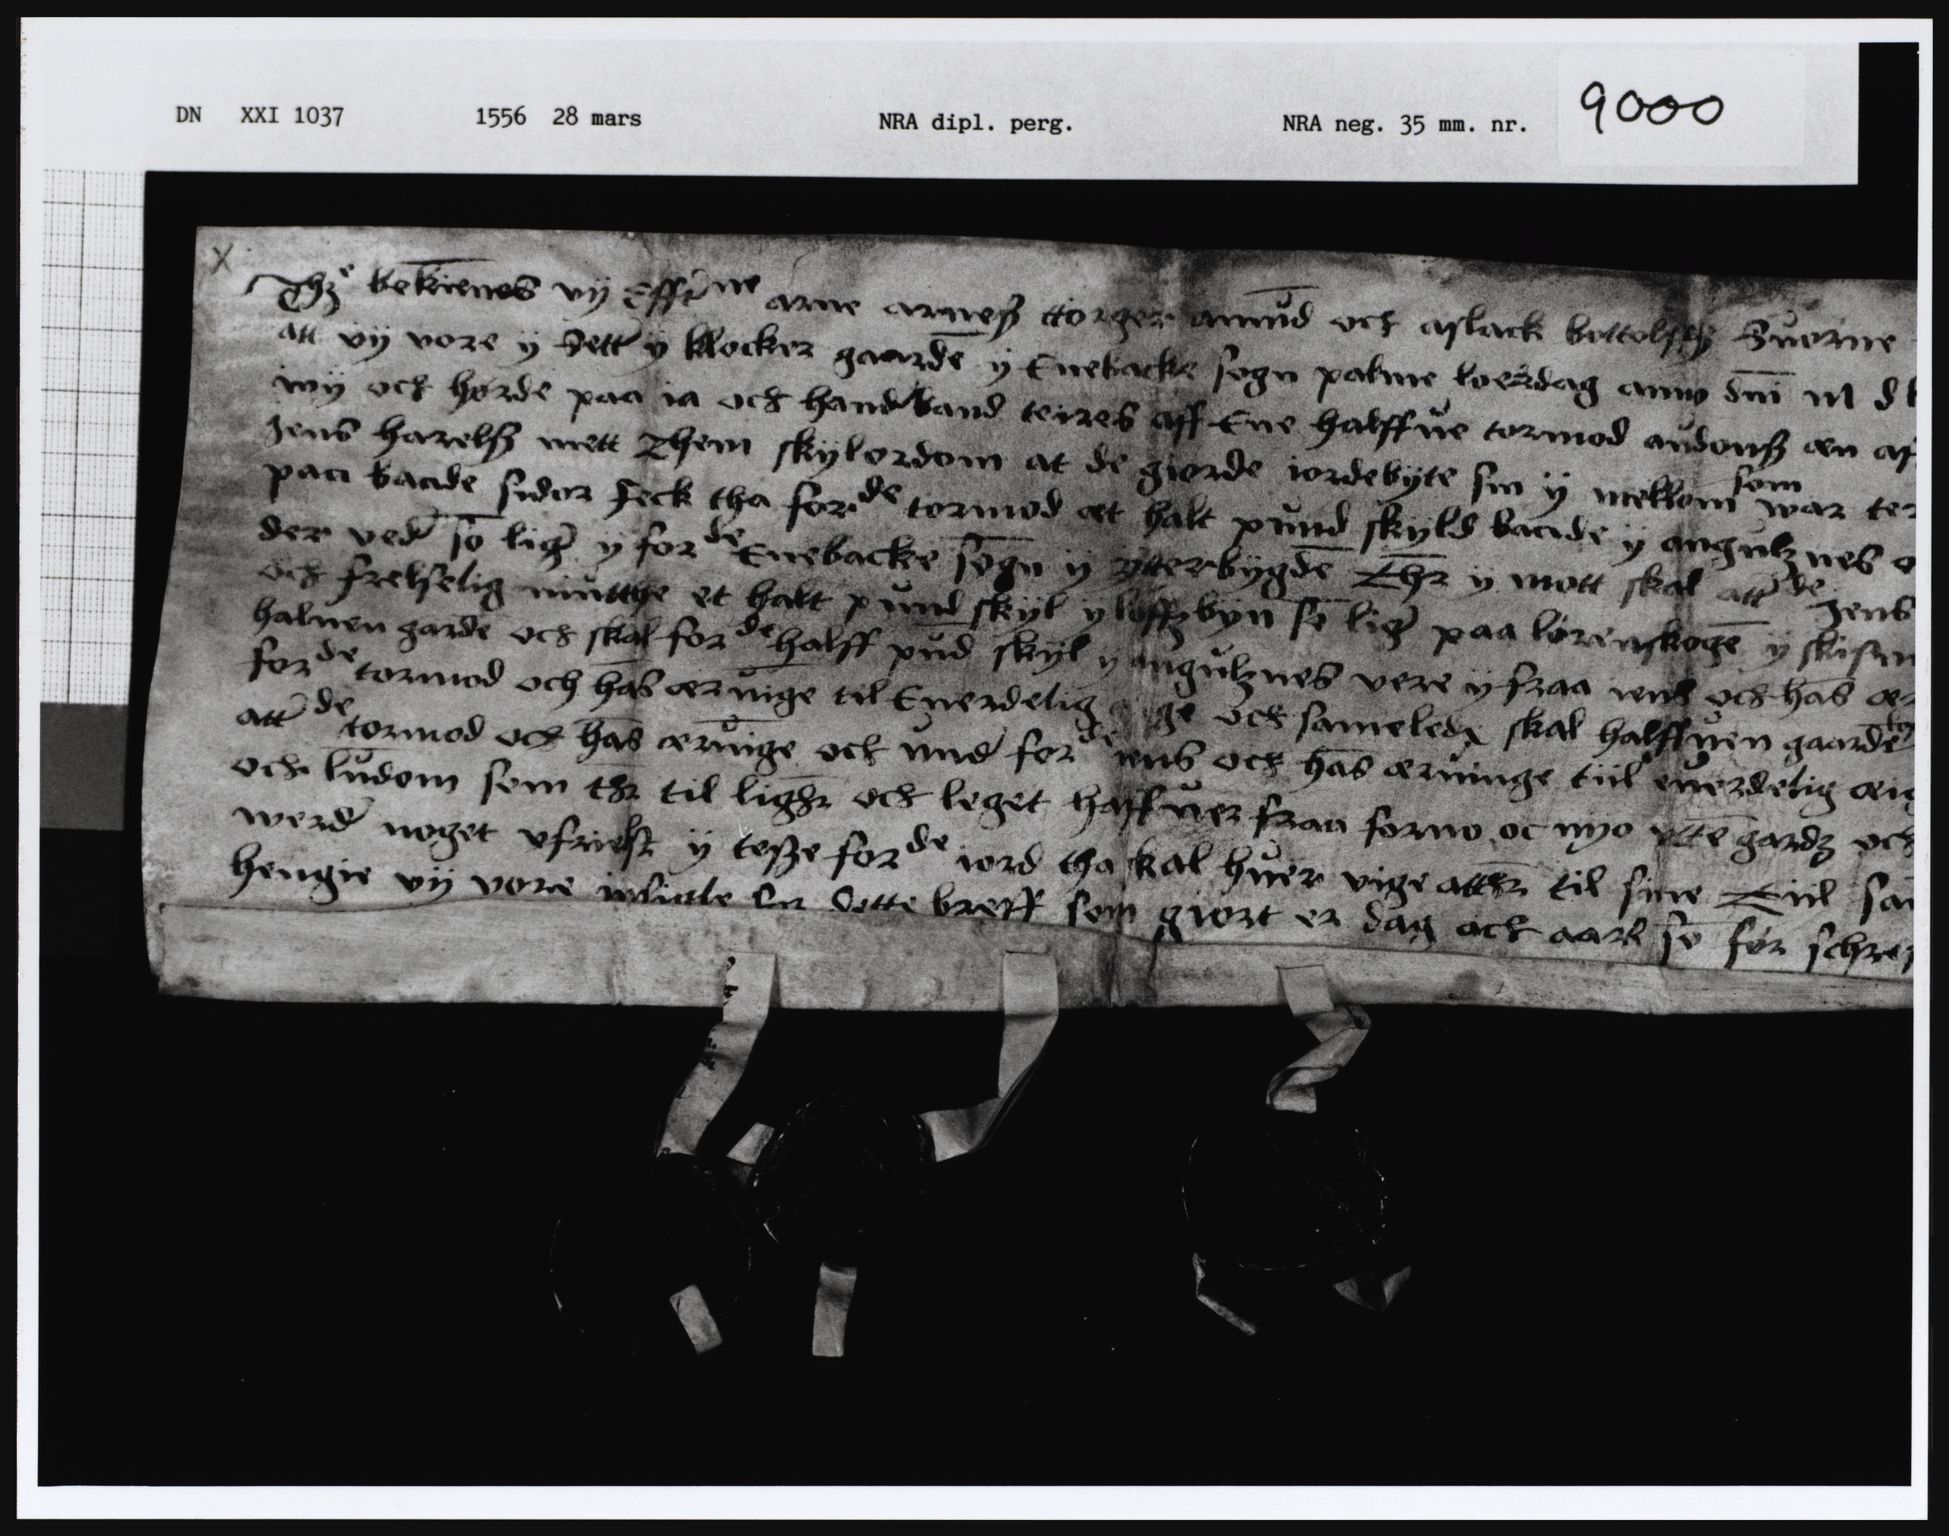 DN XXI 1037 1556 28 mars NRA dipl. perg. NRA neg. 35 mm. nr. 9000
X
Thz e bekienes vij Efft ne arne arneß ttorger amūd och aslack bottolffß Suorne
att vij vore y sett y klocker gaardē y Enebacke sogn palme loerdag anno dnī M d
wij och hørde paa ia och handband teires aff Ene halffue tormod audonß æn af
Jens harelß mett Them skylordom at de giorde iordebyte sin y mellom som war ter
paa baade sidor feck tha for de tormod æt halt pund skyld baade y angulz nes
der ved so lig y for de Enebacke sogn y ytterbygde Thr y mott skal att de Jens
och frelselig niutthe et halt pund skyl y løffzbyn so lig paa lørenskoge y skisin
halnen garde och skal for de halff pud skyl y angulznes vere y fraa iens och has ær
for de tormod och has æruinge til Enerdelig ge och sameledz skal halffuen gaarde
att de tormod och has æruinge och und for de iens och has æruinge tiil euerdelig æig
och ludom som thr til lighr och leget haffuer fraa forno oc nyo vtte gardz och
werd noget vfrielst y tesse for de iord tha kal huer vige atthr til sine Tiil san
hengie vij vore inciglle for dette breff som giort er dag och aars so før schre